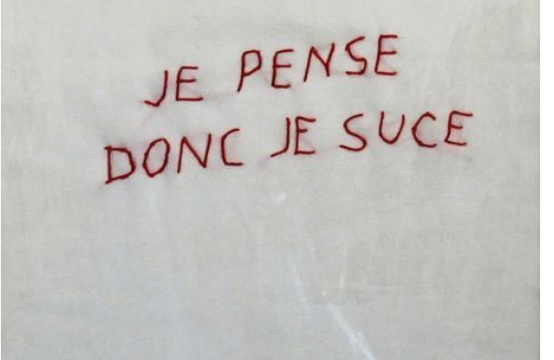 JE PENSE
DONC JE SUCE